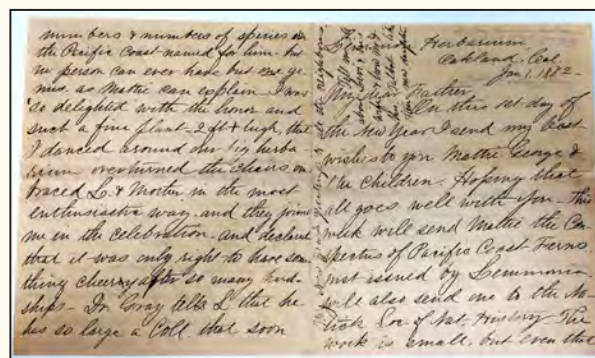 numbers & numbers of species on
the Pacific Coast named for him. but
no person can ever have but one ge-
nus. as Mattie can explain. I was
so delighted with the honor and
such a fine plant - 2 ft high, that
I danced around our big herba-
rium overturned the chairs, em
braced L. & Mother in the most
enthusiastic way - and they joined
me in the celebration - and declared
that it was only right to have some
thing cheery after so many hard-
ships - Dr Gray tells L. that he
has so large a Coll. that soon
Herbarium
Oakland, Cal.
Jan 1. 1882 -
My dear Father
On this 1st day of
the New Year I send my best
wishes to you Mattie George &
the Children. Hoping that
all goes well with you. This
week will send Mattie the Con-
spectus of Pacific Coast Ferns
just issued by Lemmon
will also send one to the Na-
tick Soc of Nat. History - The
work is small, but even that